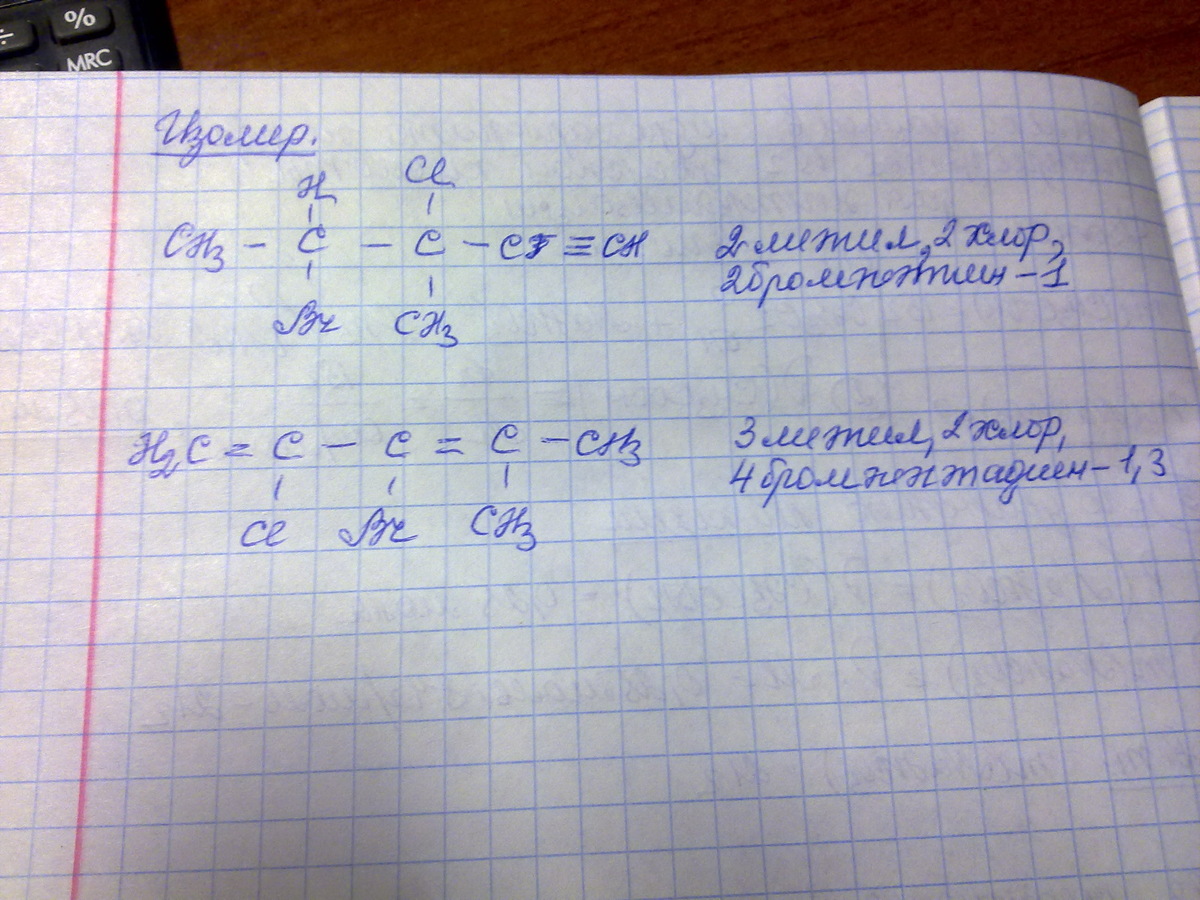 ÷ %
MRC
Изомер.
H Cl
CH₃ – C – C – C ≡ CH 2 метил, 2 хлор,
2бромпентин – 1
Br CH₃
H₂C = C – C = C – CH₃ 3 метил, 2 хлор,
4 бромпентадиен – 1,3
Cl Br CH₃